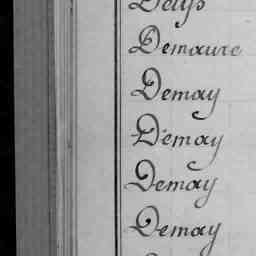 Delys
Demaure
Demay
Demay
Demay
Demay